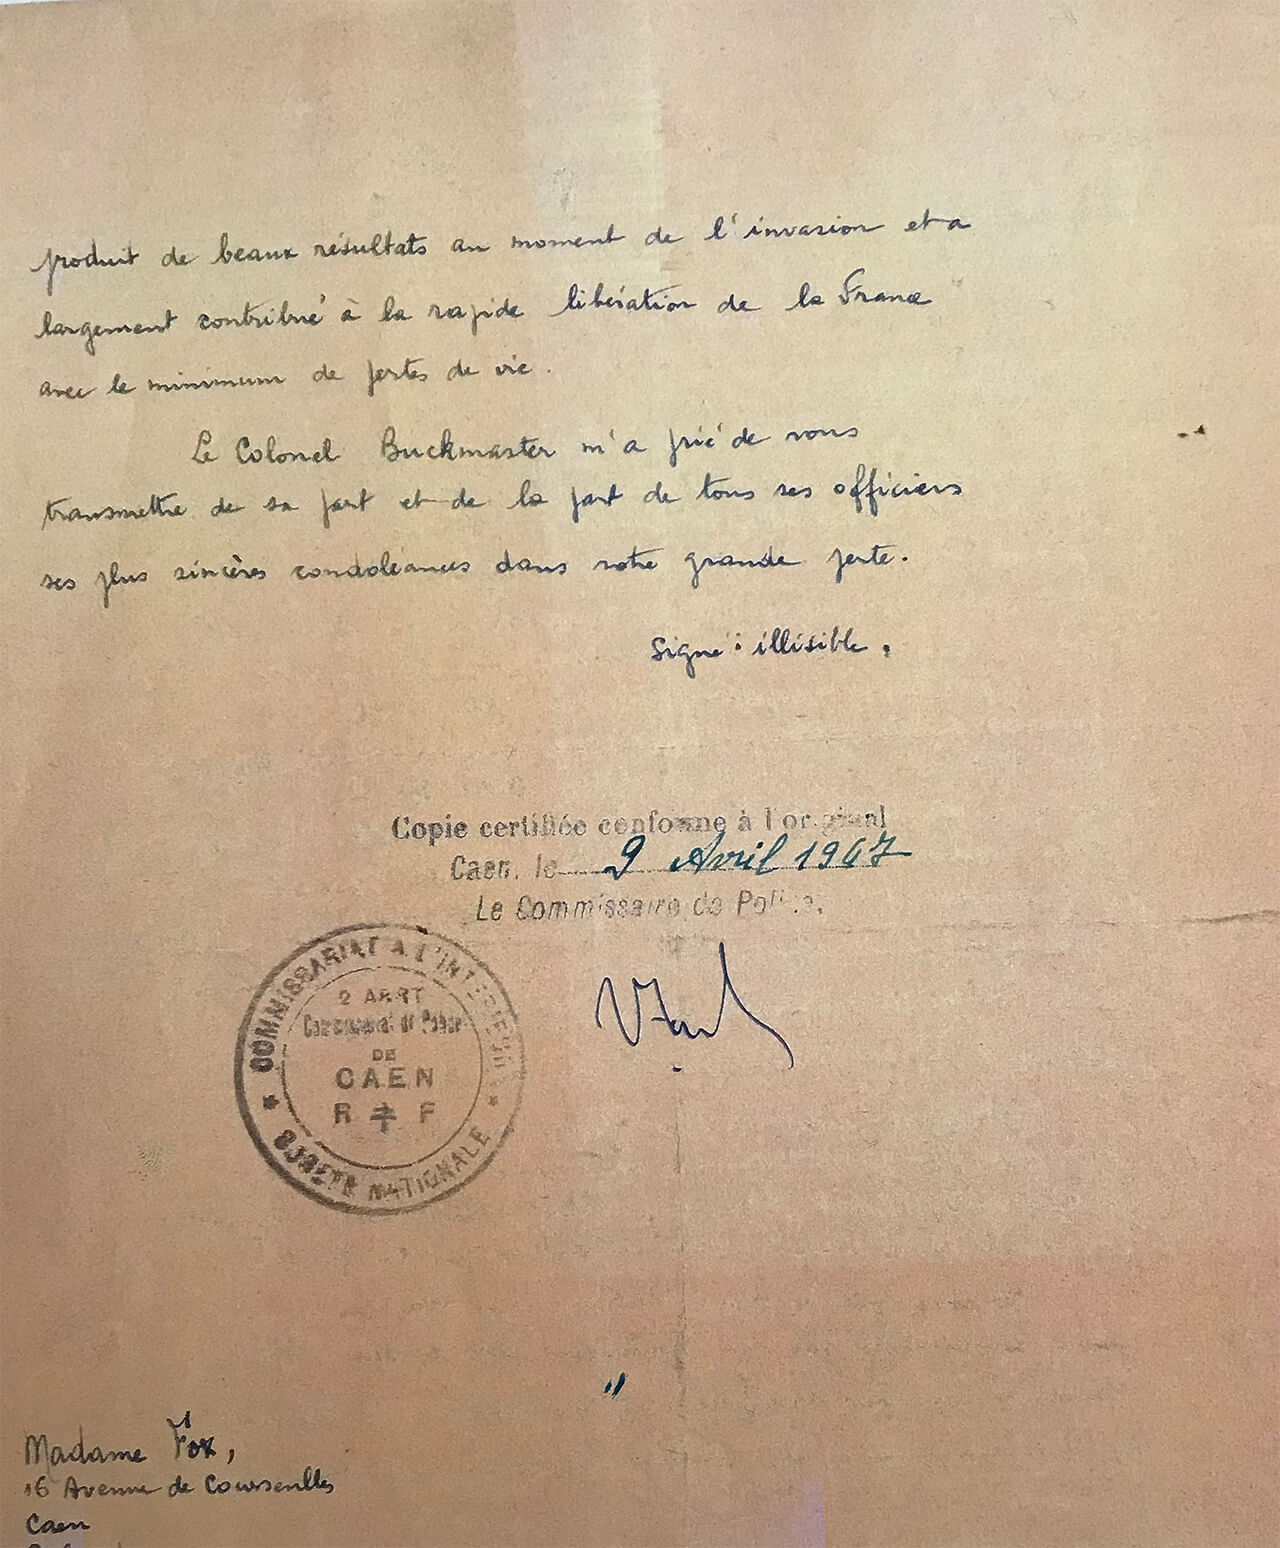 produit de beaux résultats au moment de l'invasion et a
largement contribué à la rapide libération de la France
avec le minimum de pertes de vie.
Le Colonel Buckmaster m'a prié de vous
transmettre de sa part et de la part de tous ses officiers
ses plus sincères condoléances dans votre grande perte.
Signé : illisible.
Copie certifiée conforme à l'original
Caen, le 9 Avril 1947
Le Commissaire de Police,
COMMISSARIAT A L'INTERIEUR
2 ARRT
Commissariat de Police
DE
CAEN
R F
SURETE NATIONALE
Madame Fox,
16 Avenue de Courseulles
Caen